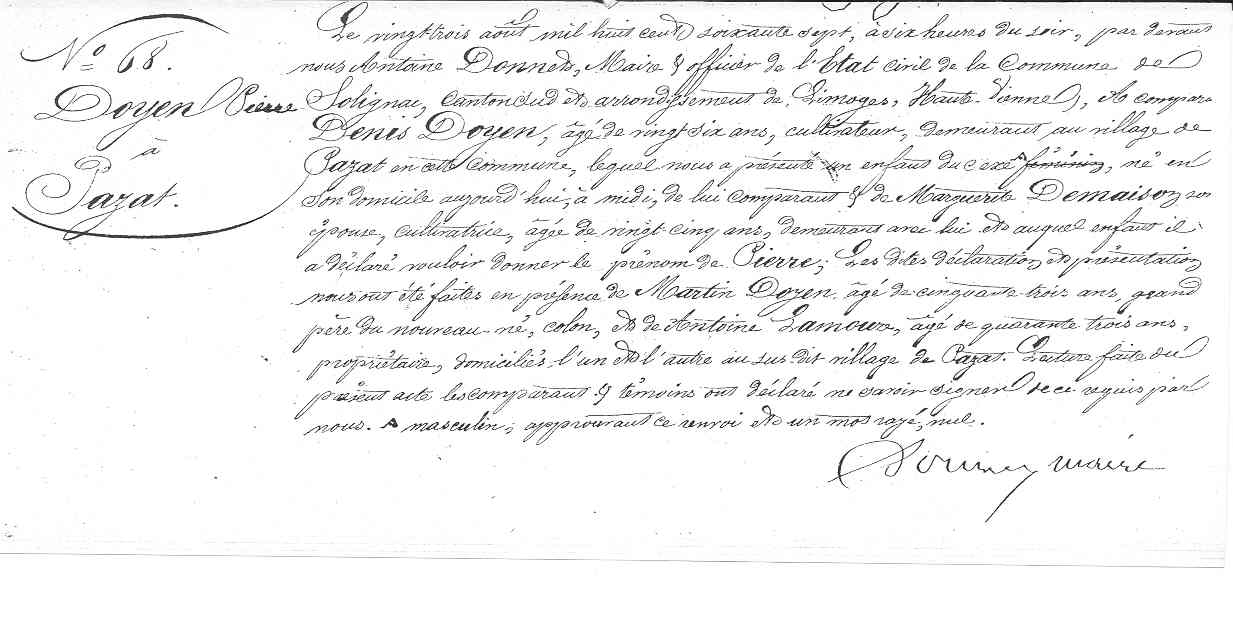 N° 68.
Doyen Pierre
à
Pazat.
Le vingt trois août mil huit cent soixante sept, à six heures du soir, par devant
nous Antoine Donnet, Maire & officier de l'Etat civil de la Commune de
Solignac, Canton sud et arrondissement de Limoges, Haute-Vienne, A comparu
Denis Doyen, âgé de vingt six ans, cultivateur, demeurant au village de
Pazat en cette commune, lequel nous a présenté un enfant du sexe féminin, né en
son domicile aujourd'hui, à midi, de lui comparant & de Marguerite Demaison son
épouse, cultivatrice, âgée de vingt cinq ans, demeurant avec lui et auquel enfant il
a déclaré vouloir donner le prénom de Pierre; Les dites déclaration et présentation
nous ont été faites en présence de Martin Doyen âgé de cinquante trois ans, grand
père du nouveau-né, colon, et de Antoine Lamoure, âgé de quarante trois ans,
propriétaire, domiciliés l'un et l'autre au sus dit village de Pazat. Lecture faite du
présent acte les comparant & témoins ont déclaré ne savoir signer de ce requis par
nous. masculin; approuvant ce renvoi et un mot rayé, nul.
Donnet maire